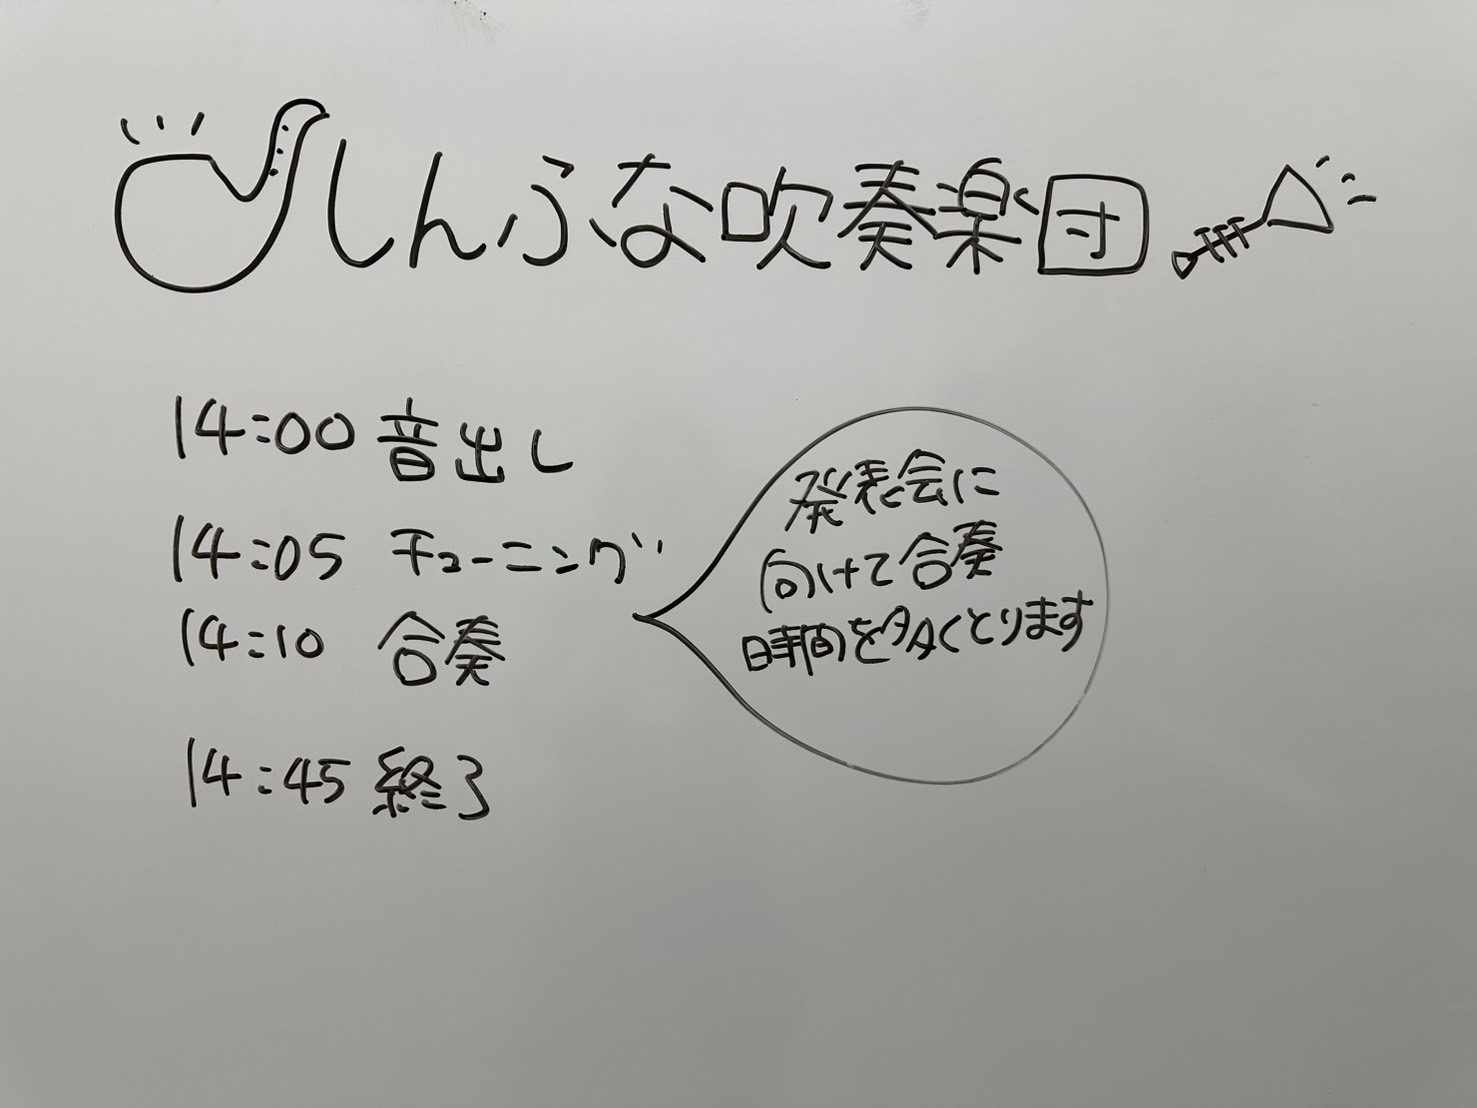 しんふな吹奏楽団
14:00 音出し
14:05 チューニング
14:10 合奏
発表会に
向けて合奏
時間を多くとります
14:45 終了